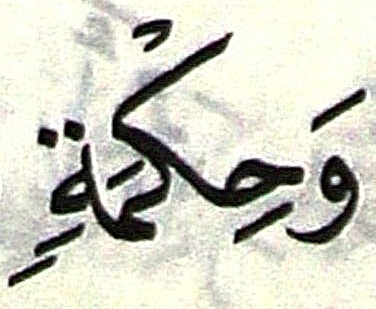 وَحِكْمَةٍ